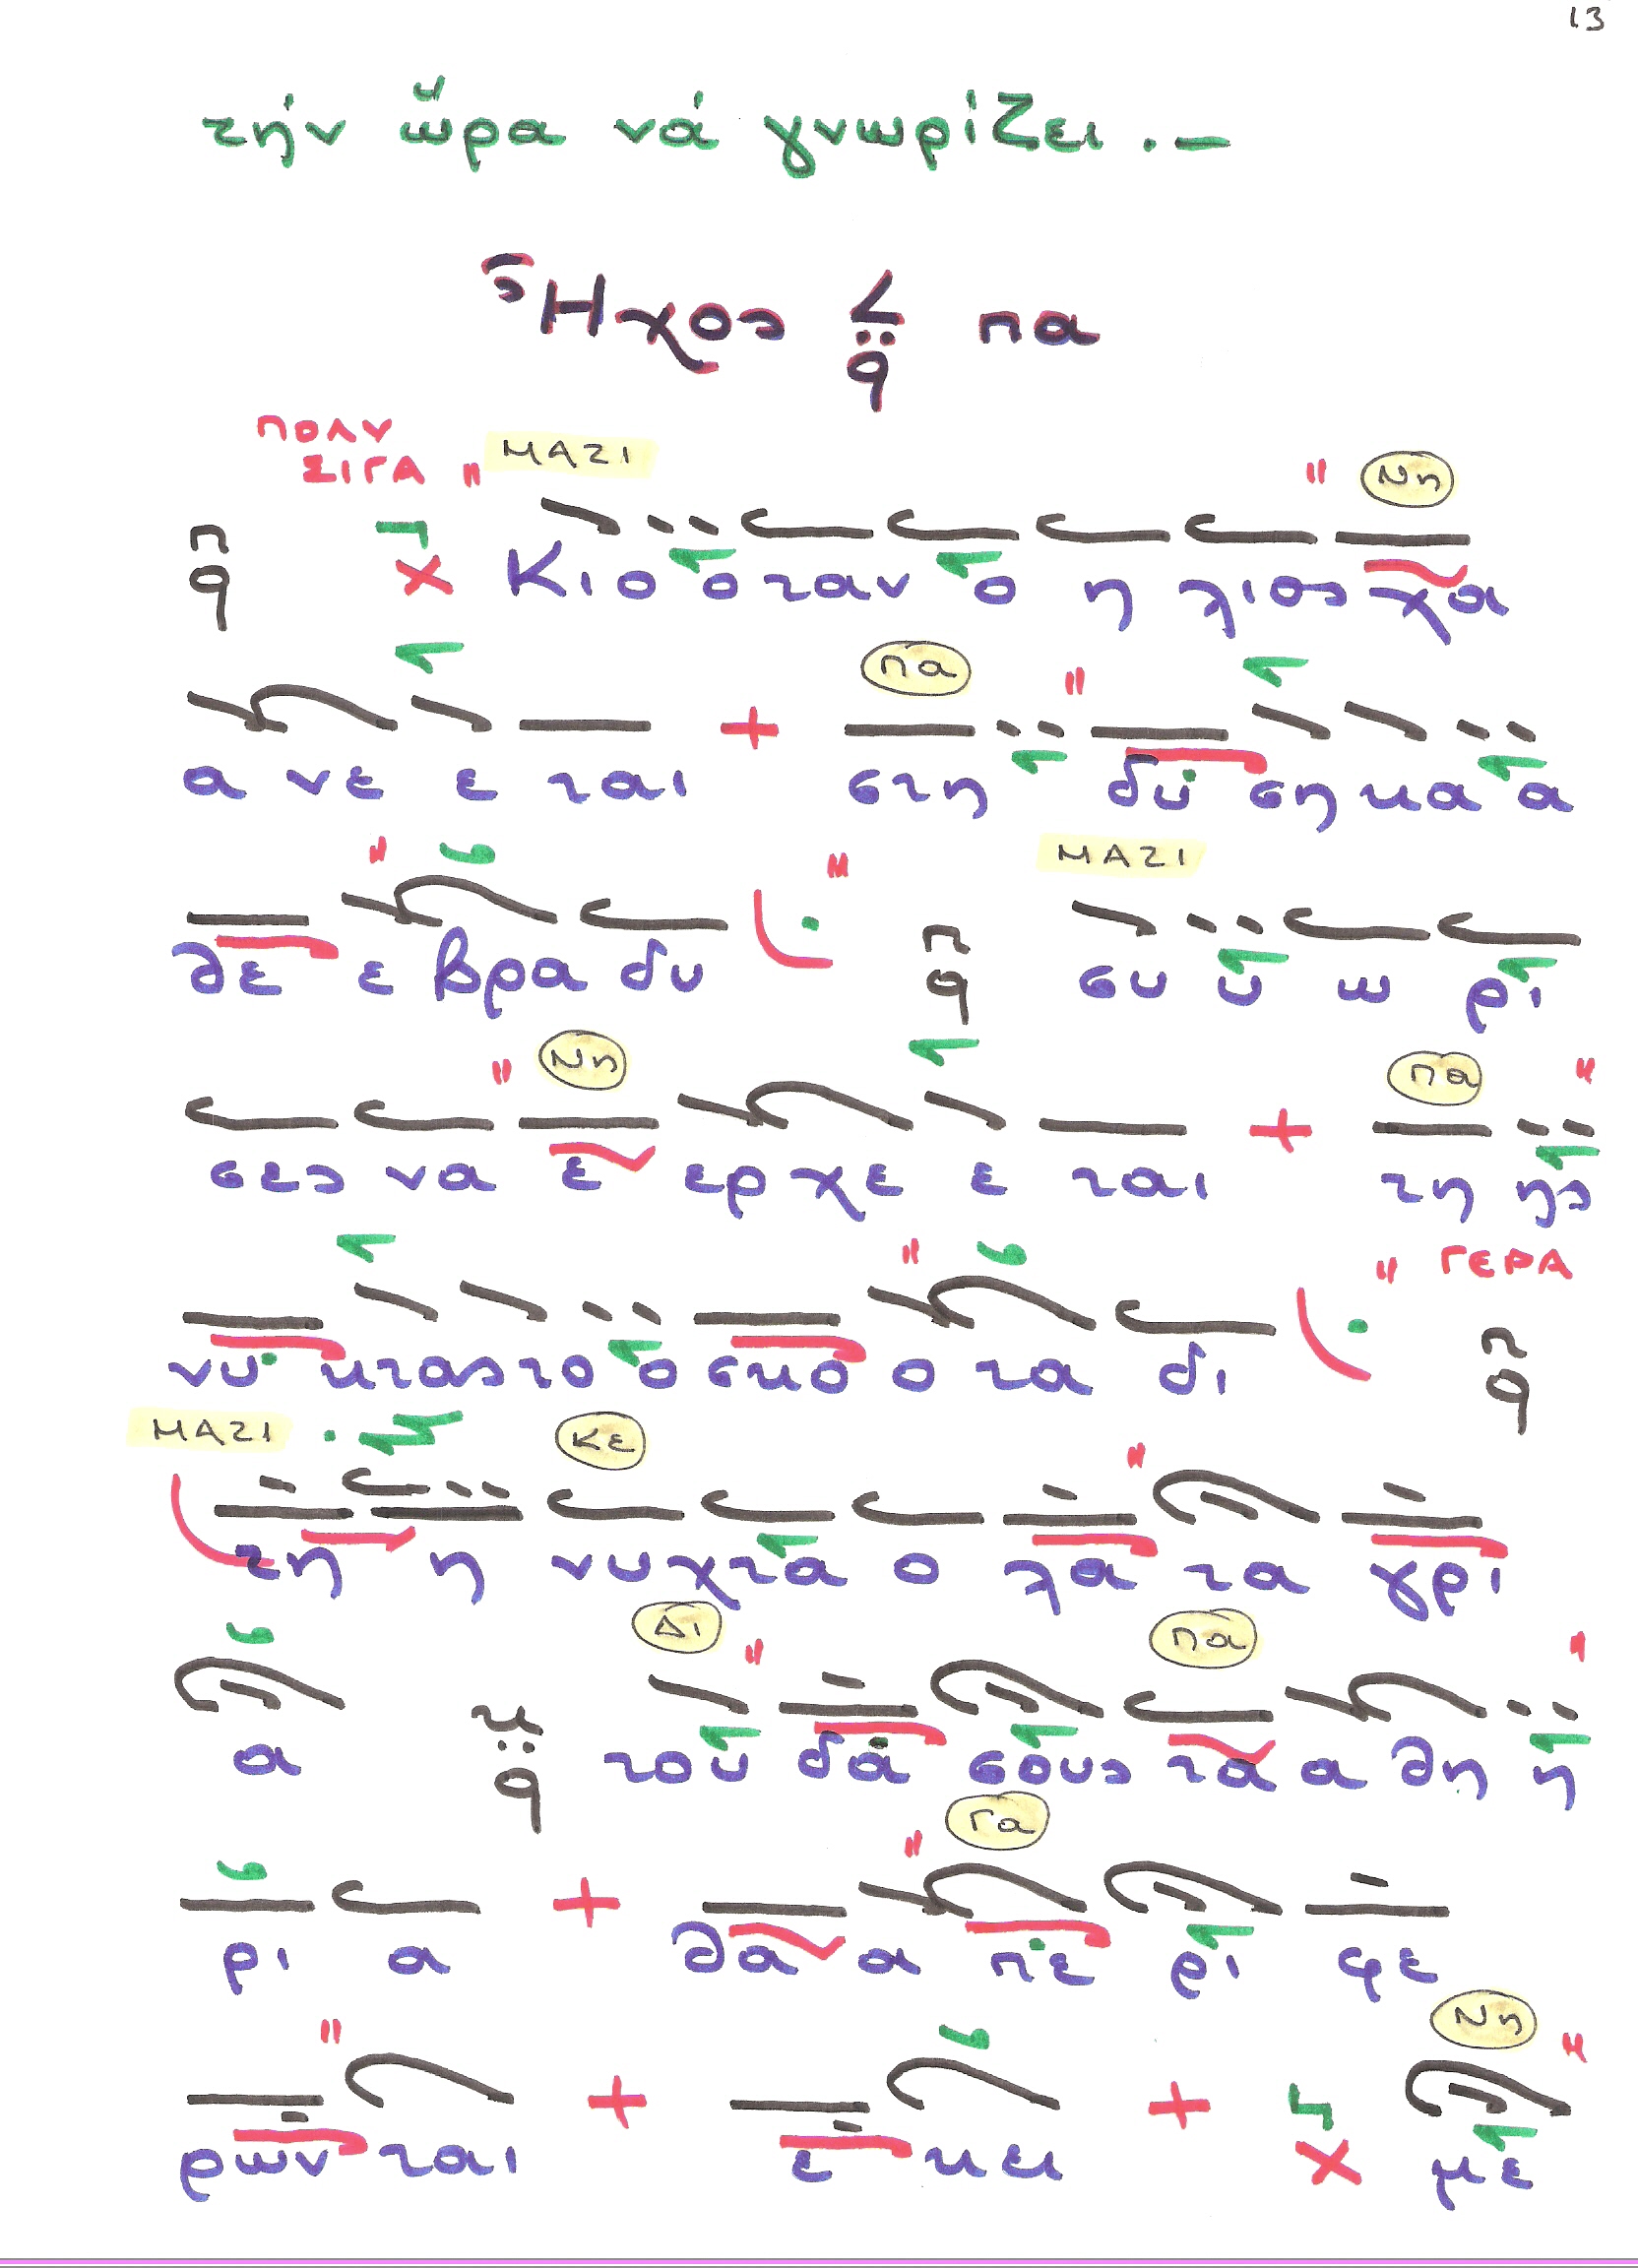 13
τήν ὥρα νά γνωρίζει .–
Ἦχος πα
ΠΟΛΥ
ΣΙΓΑ ΜΑΖΙ Νη
Κι ο ο ταν ο η λιος χα
πα
α νε ε ται + στη δυ ση κα α
ΜΑΖΙ
θε ε βρα δυ συ υ ω ρι
Νη πα
σες να ε ερ χε ε ται + τη ης
ΓΕΡΑ
νυ κτας το ο σκο ο τα δι
ΜΑΖΙ κε
τη η νυ χτα ο λα τα γρι
Δι πα
α του δα σους τα α θη η
Γα
ρι α + θα α πε ρι φε
Νη
ρων ται + ε κει + με